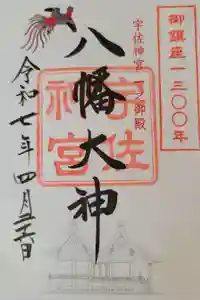 御鎮座一三〇〇年
宇佐神宮 一之御殿
八幡大神
宇佐神宮
令和七年四月二十六日